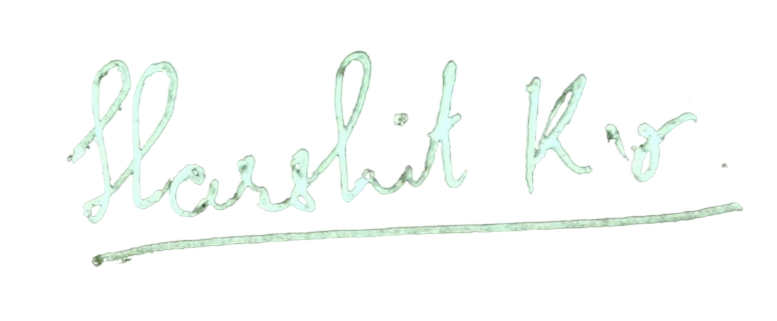 Harshit Kr.